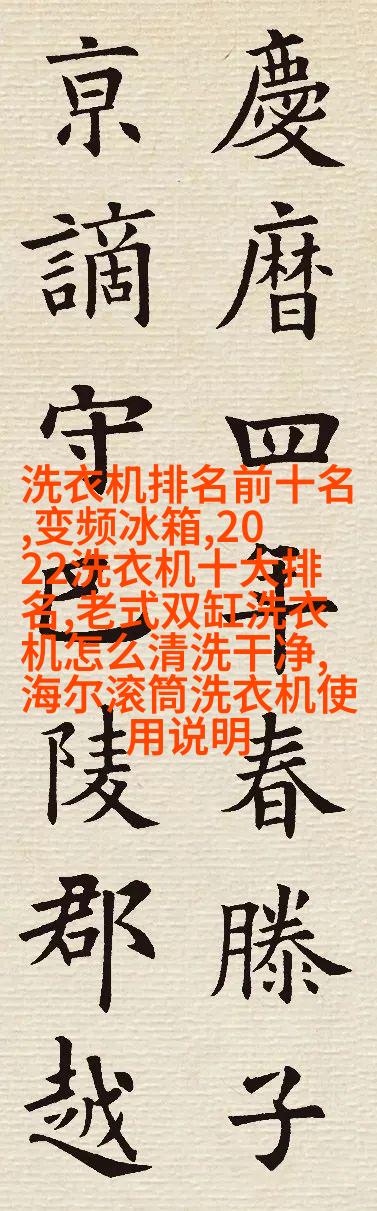 慶曆四年春滕子
京謫守巴陵郡越
洗衣机排名前十名
,变频冰箱,20
22洗衣机十大排
名,老式双缸洗衣
机怎么清洗干净,
海尔滚筒洗衣机使
用说明